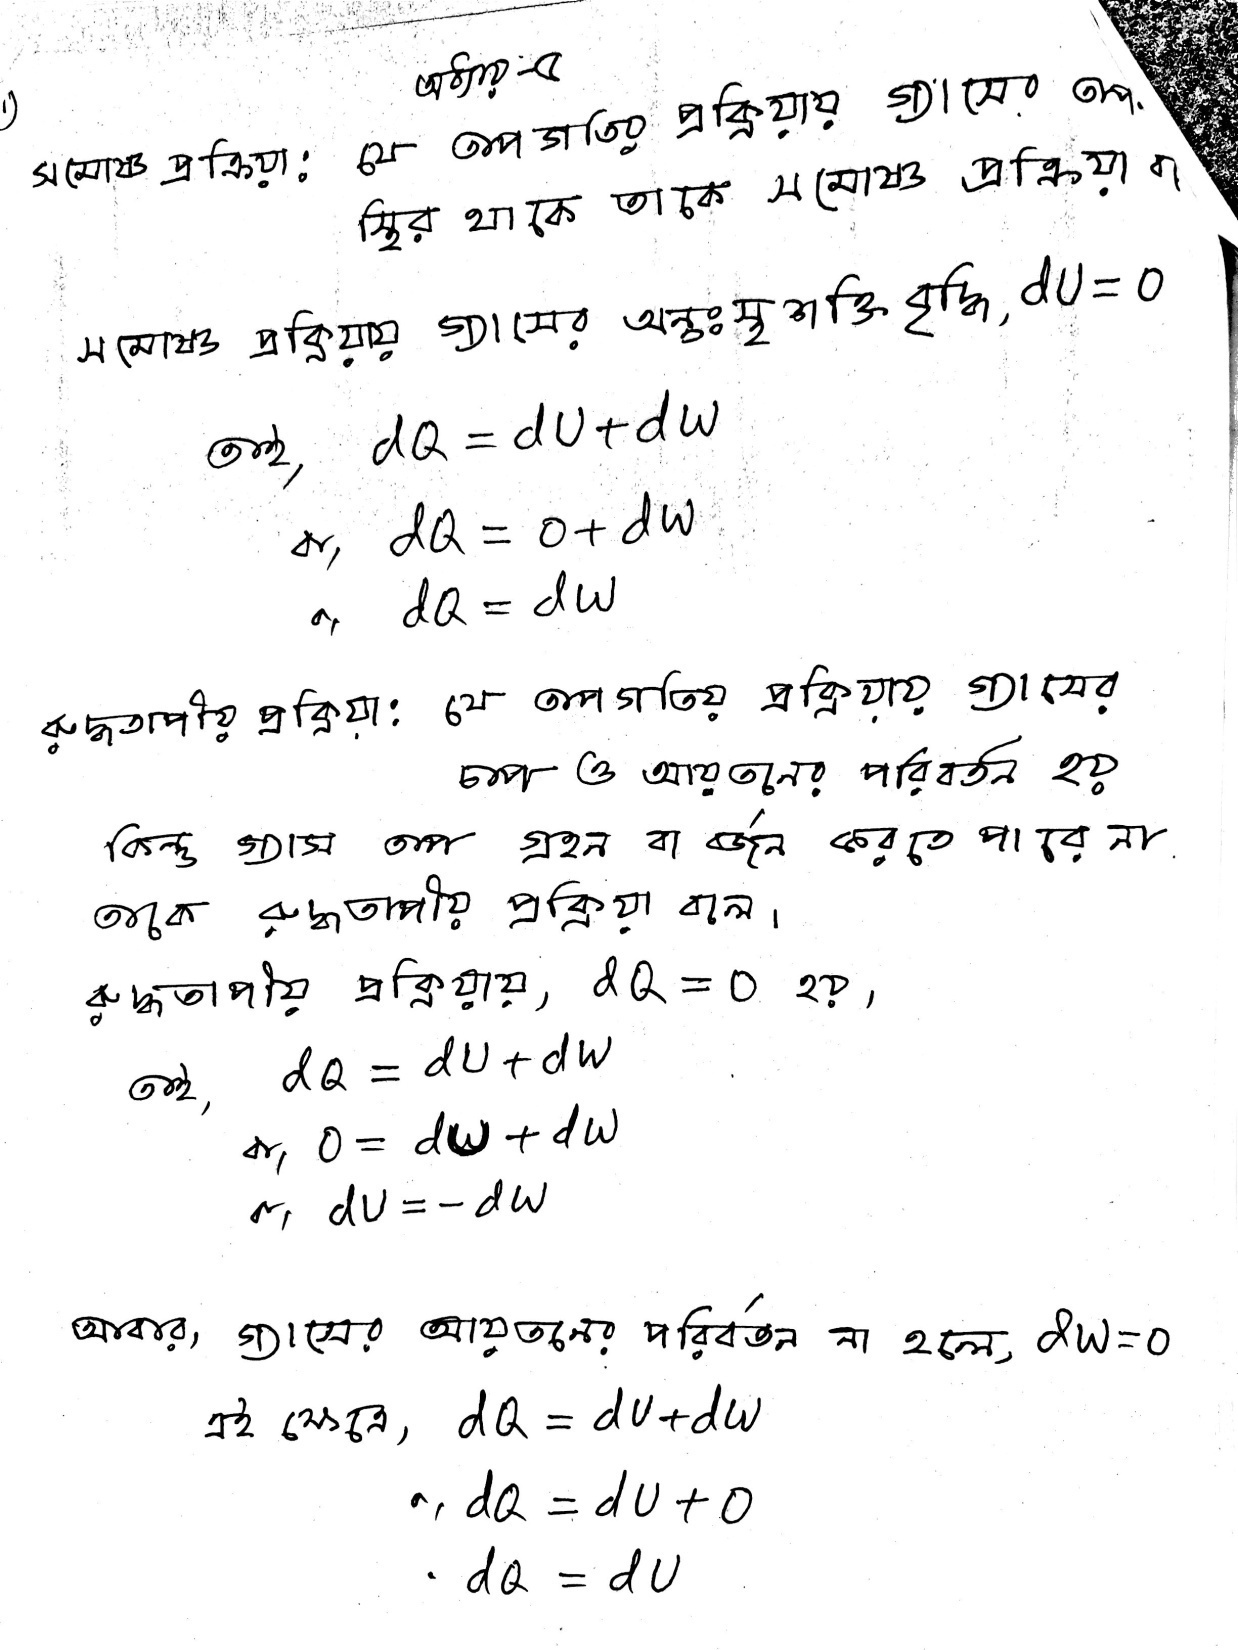 অধ্যায়-৫
১)
সমোষ্ণ প্রক্রিয়া: যে তাপগতিয় প্রক্রিয়ায় গ্যাসের তাপ.
স্থির থাকে তাকে সমোষ্ণ প্রক্রিয়া ব
সমোষ্ণ প্রক্রিয়ায় গ্যাসের অন্তঃস্থ শক্তি বৃদ্ধি, dU = 0
তাই, dQ = dU + dW
বা, dQ = 0 + dW
বা, dQ = dW
রুদ্ধতাপীয় প্রক্রিয়া: যে তাপগতিয় প্রক্রিয়ায় গ্যাসের
চাপ ও আয়তনের পরিবর্তন হয়
কিন্তু গ্যাস তাপ গ্রহন বা বর্জন করতে পারে না
তাকে রুদ্ধতাপীয় প্রক্রিয়া বলে।
রুদ্ধতাপীয় প্রক্রিয়ায়, dQ = 0 হয়,
তাই, dQ = dU + dW
বা, 0 = dW + dW
বা, dU = - dW
আবার, গ্যাসের আয়তনের পরিবর্তন না হলে, dW = 0
এই ক্ষেত্রে, dQ = dU + dW
বা, dQ = dU + 0
dQ = dU